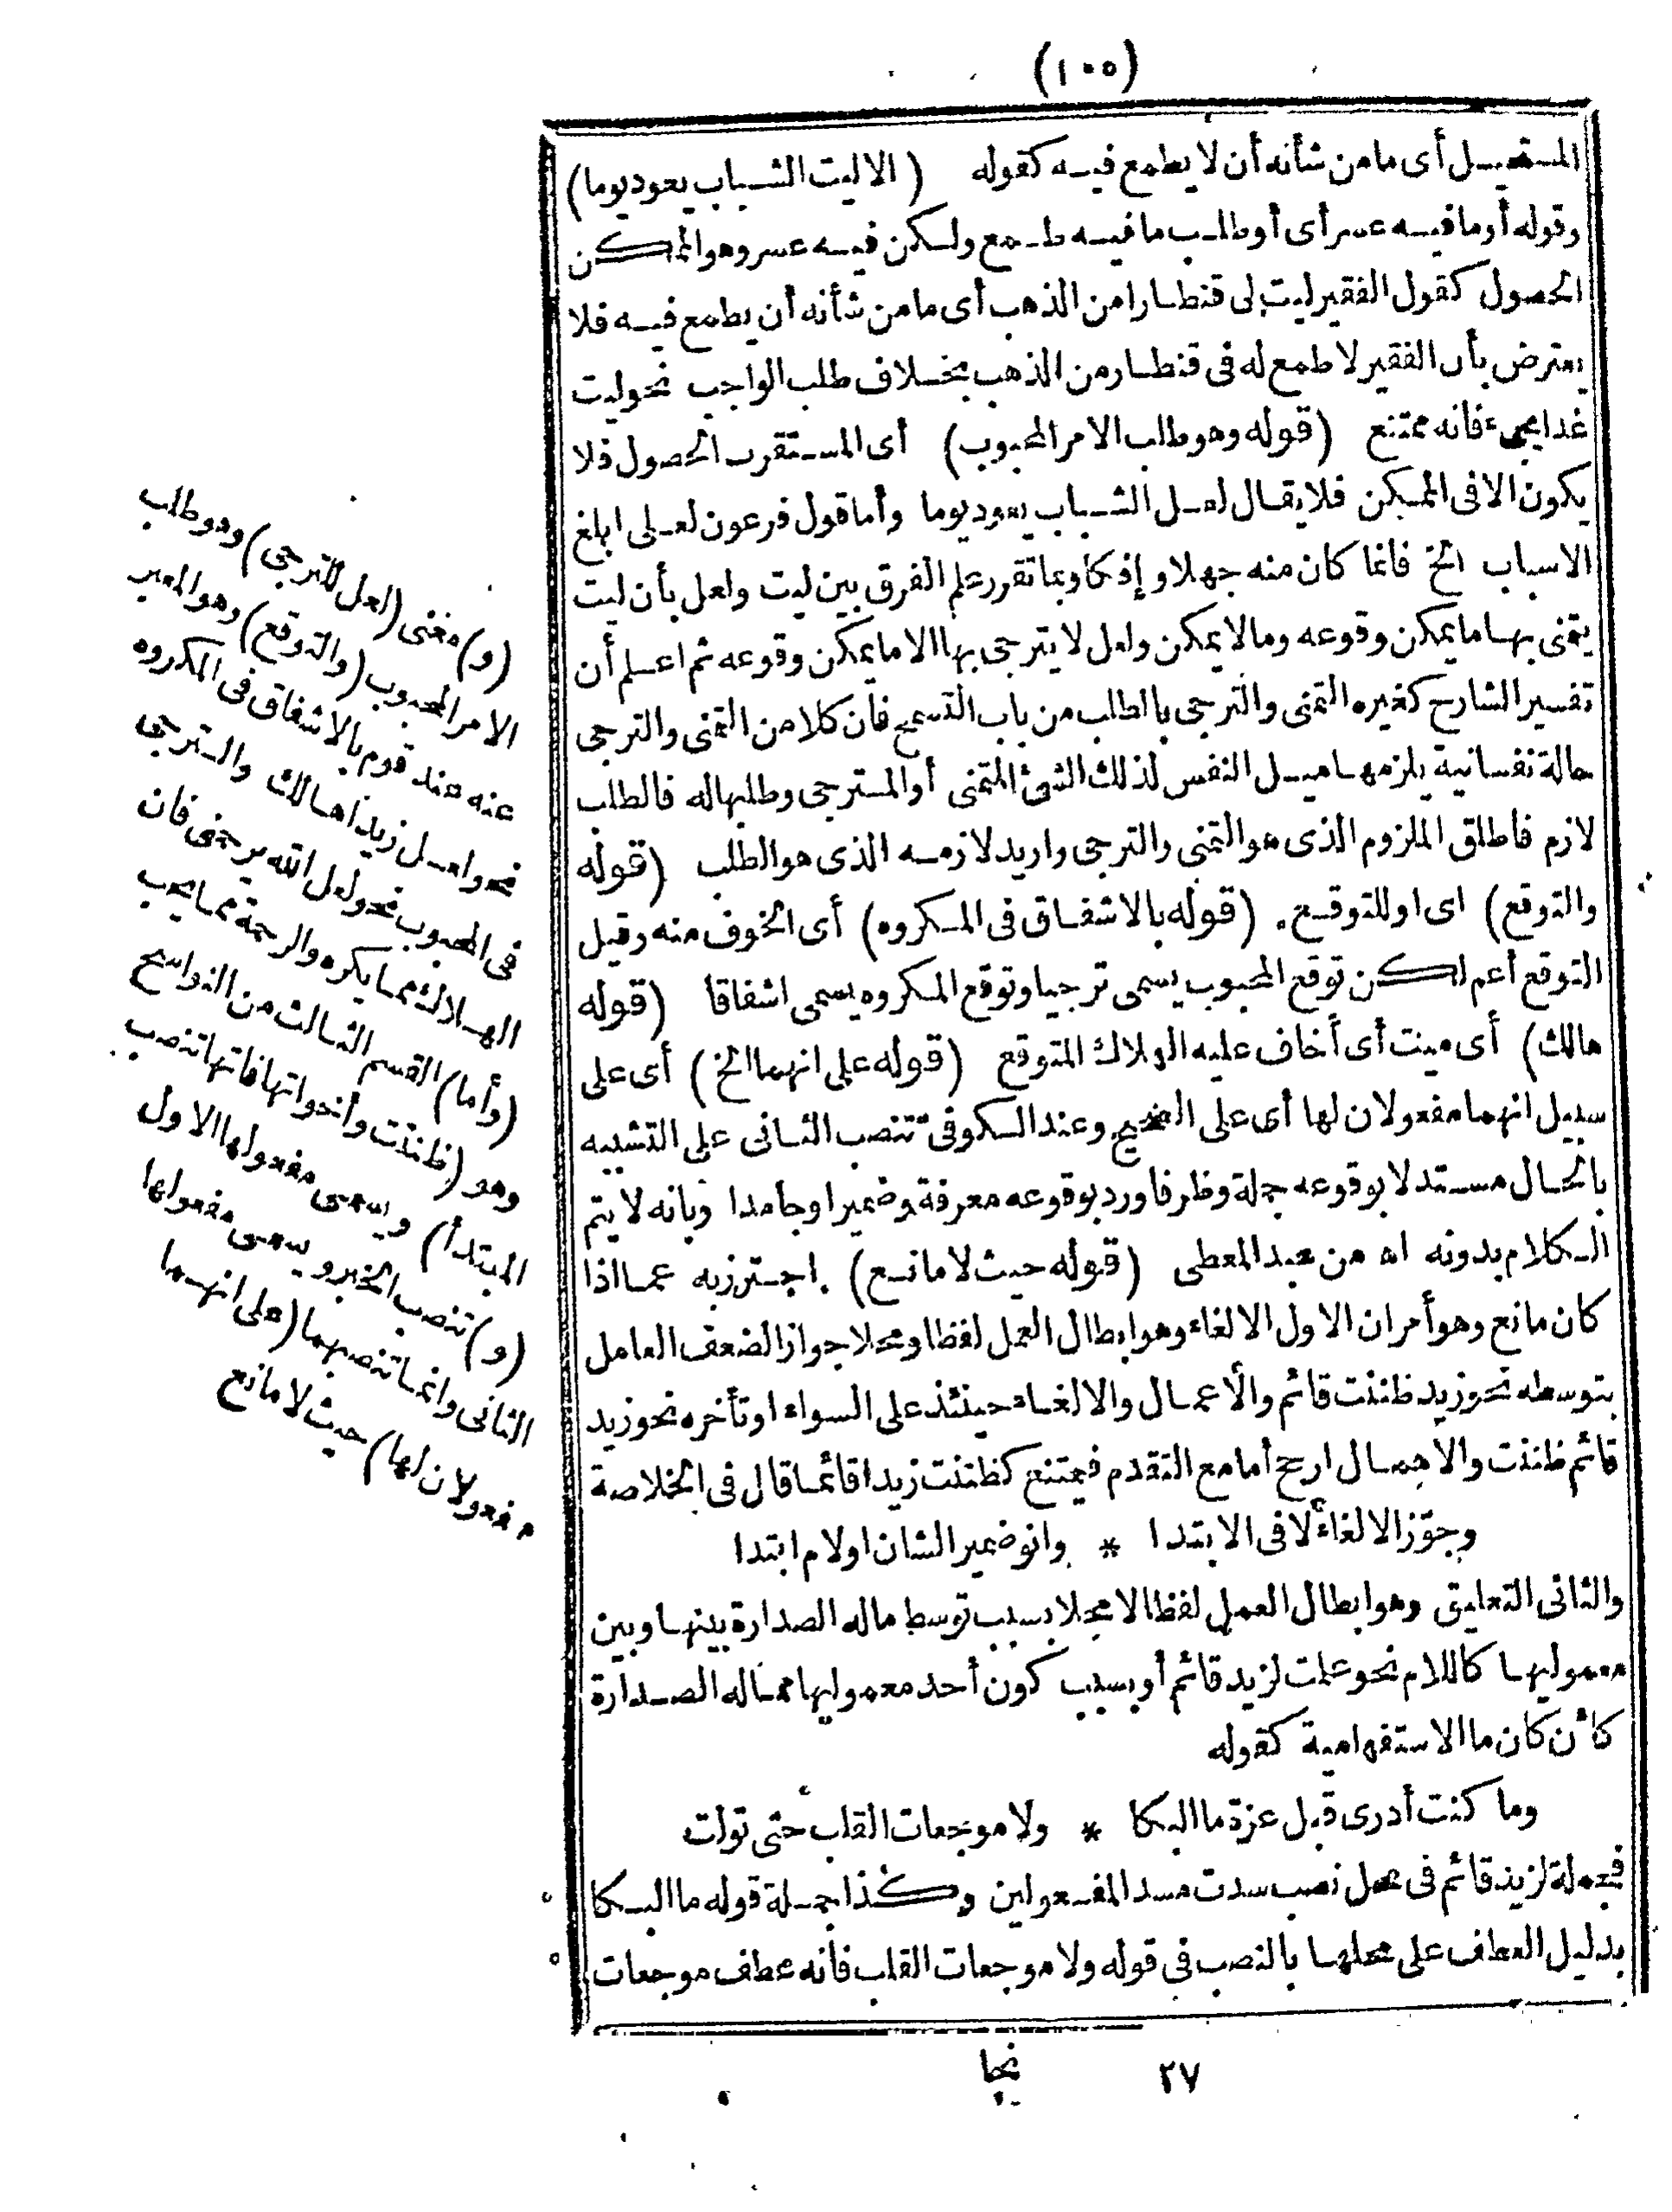 (١٠٥)
المستحيل أى ما من شأنه أن لا يطمع فيه كقوله (الا ليت الشباب يعود يوما)
وقوله أو ما فيه عسر أى أو طلب ما فيه طمع ولكن فيه عسر وهو الممكن
الحصول كقول الفقير ليت لى قنطارا من الذهب أى ما من شأنه أن يطمع فيه فلا
يعترض بأن الفقير لا طمع له فى قنطار من الذهب بخلاف طلب الواجب نحو ليت
غدا يجىء فانه ممتنع (قوله وهو طلب الامر المحبوب) أى المستقرب الحصول فلا
يكون الا فى الممكن فلا يقال لعل الشباب يعود يوما وأما قول فرعون لعلى ابلغ
الاسباب الخ فانما كان منه جهلا وإفكا وبما تقرر علم الفرق بين ليت ولعل بأن ليت
يتمنى بها ما يمكن وقوعه وما لا يمكن ولعل لا يترجى بها الا ما يمكن وقوعه ثم اعلم أن
تفسير الشارح كغيره التمنى والترجى بالطلب من باب التسمح فان كلا من التمنى والترجى
حالة نفسانية يلزمها ميل النفس لذلك الشئ المتمنى أو المترجى وطلبها له فالطلب
لازم فاطلق الملزوم الذى هو التمنى والترجى واريد لازمه الذى هو الطلب (قوله
والتوقع) اى او للتوقع . (قوله بالاشفاق فى المكروه) أى الخوف منه وقيل
التوقع أعم لكن توقع المحبوب يسمى ترجيا وتوقع المكروه يسمى اشفاقا (قوله
هالك) أى ميت أى أخاف عليه الهلاك المتوقع (قوله على انهما الخ) أى على
سبيل انهما مفعولان لها أى على الصحيح وعند السكوفى تنصب الثانى على التشبيه
بالحال مستدلا بوقوعه جملة وظرفا ورد بوقوعه معرفة وضميرا وجامدا وبانه لا يتم
الكلام بدونه اه من عبد المعطى (قوله حيث لا مانع) احترز به عما اذا
كان مانع وهو أمران الاول الالغاء وهو ابطال العمل لفظا ومحلا جواز الضعف العامل
بتوسطه نحو زيد ظننت قائم والأعمال والالغاء حينئذ على السواء او تأخره نحو زيد
قائم ظننت والاهمال ارجح أما مع التقدم فيمتنع كظننت زيدا قائما قال فى الخلاصة
وجوّز الالغاء لا فى الابتدا * وانو ضمير الشان او لام ابتدا
والثانى التعليق وهو ابطال العمل لفظا لا محلا بسبب توسط ماله الصدارة بينها وبين
معموليها كاللام نحو علمت لزيد قائم أو بسبب كون أحد معموليها مماله الصدارة
كأن كان ما الاستفهامية كقوله
وما كنت أدرى قبل عزة ما البكا * ولا موجعات القلب حتى تولت
فجملة لزيد قائم فى محل نصب سدت مسد المفعولين وكذا جملة قوله ما البكا
بدليل العطف على محلها بالنصب فى قوله ولا موجعات القلب فأنه عطف موجعات
٢٧ نجا
(و) معنى (لعل للترجى) وهو طلب
الامر المحبوب (والتوقع) وهو المعبر
عنه عند قوم بالاشفاق فى المكروه
نحو لعل زيدا هالك والترجى
فى المحبوب نحو لعل الله يرحمنى فان
الهلاك مما يكره والرحمة مما يحب
(وأما) القسم الثالث من النواسخ
وهو (ظننت وأخواتها فانها تنصب
المبتدأ) ويسمى مفعولها الاول
(و) تنصب الخبر ويسمى مفعولها
الثانى وانما تنصبهما (على انهما
مفعولان لها) حيث لا مانع